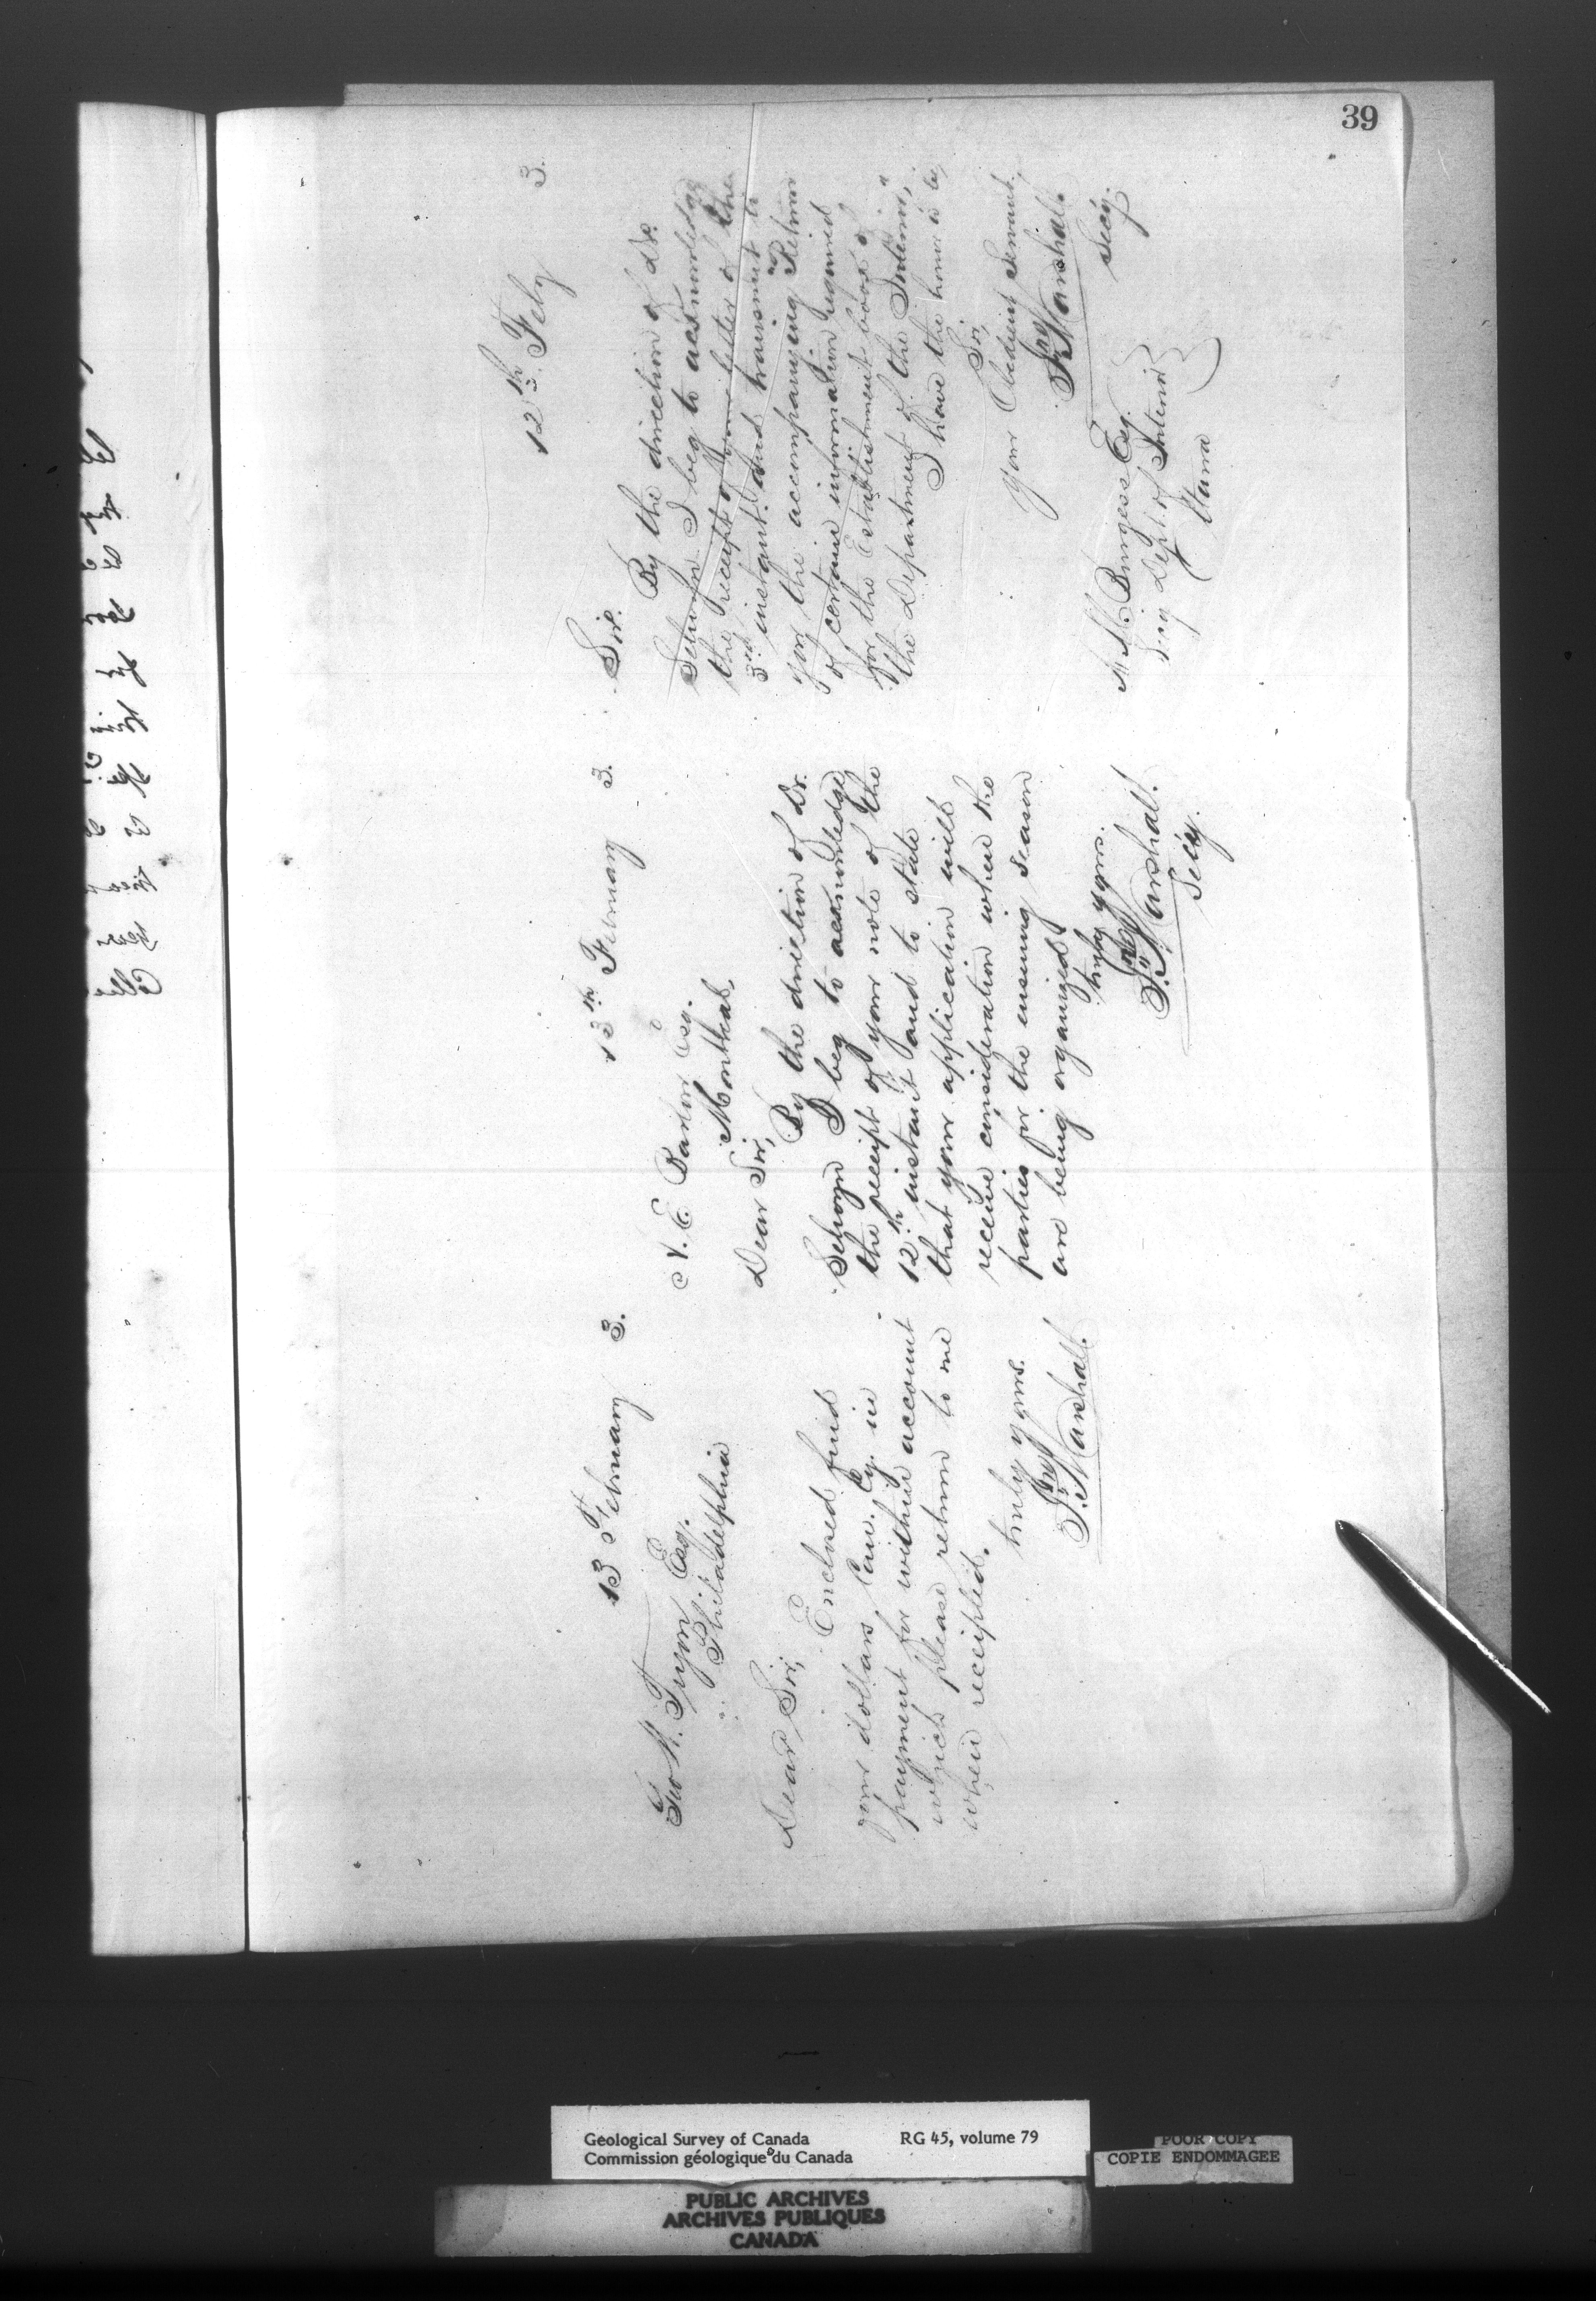 39
13 February 3.
Geo W. Tryon Esq.
Philadelphia
Dear Sir,
Enclosed find
four dollars Can. Cy. in
payment for within account
which please return to me
when receipted.
truly yours.
Jno Marshall.
13th February 3.
A. E. Barlow Esq.
Montreal,
Dear Sir,
By the direction of Dr.
Selwyn I beg to acknowledge
the receipt of your note of the
12th instant and to state
that your application will
receive consideration when the
parties for the ensuing season
are being organized.
truly yours.
Jno Marshall.
Secy.
12th Feby 3.
Sir.
By the direction of Dr.
Selwyn I beg to acknowledge
the receipt of your letter of the
3rd instant and transmit to
you the accompanying Return
of certain information required
for the Establishment book of
the Department of the Interior,"
I have the honor to be,
Sir,
Your Obedient Servant,
Jno Marshall.
Secy.
Burgess Esq.
Secy Dept. of Interior
Ottawa
Geological Survey of Canada RG 45, volume 79
Commission géologique du Canada
POOR COPY
COPIE ENDOMMAGEE
PUBLIC ARCHIVES
ARCHIVES PUBLIQUES
CANADA